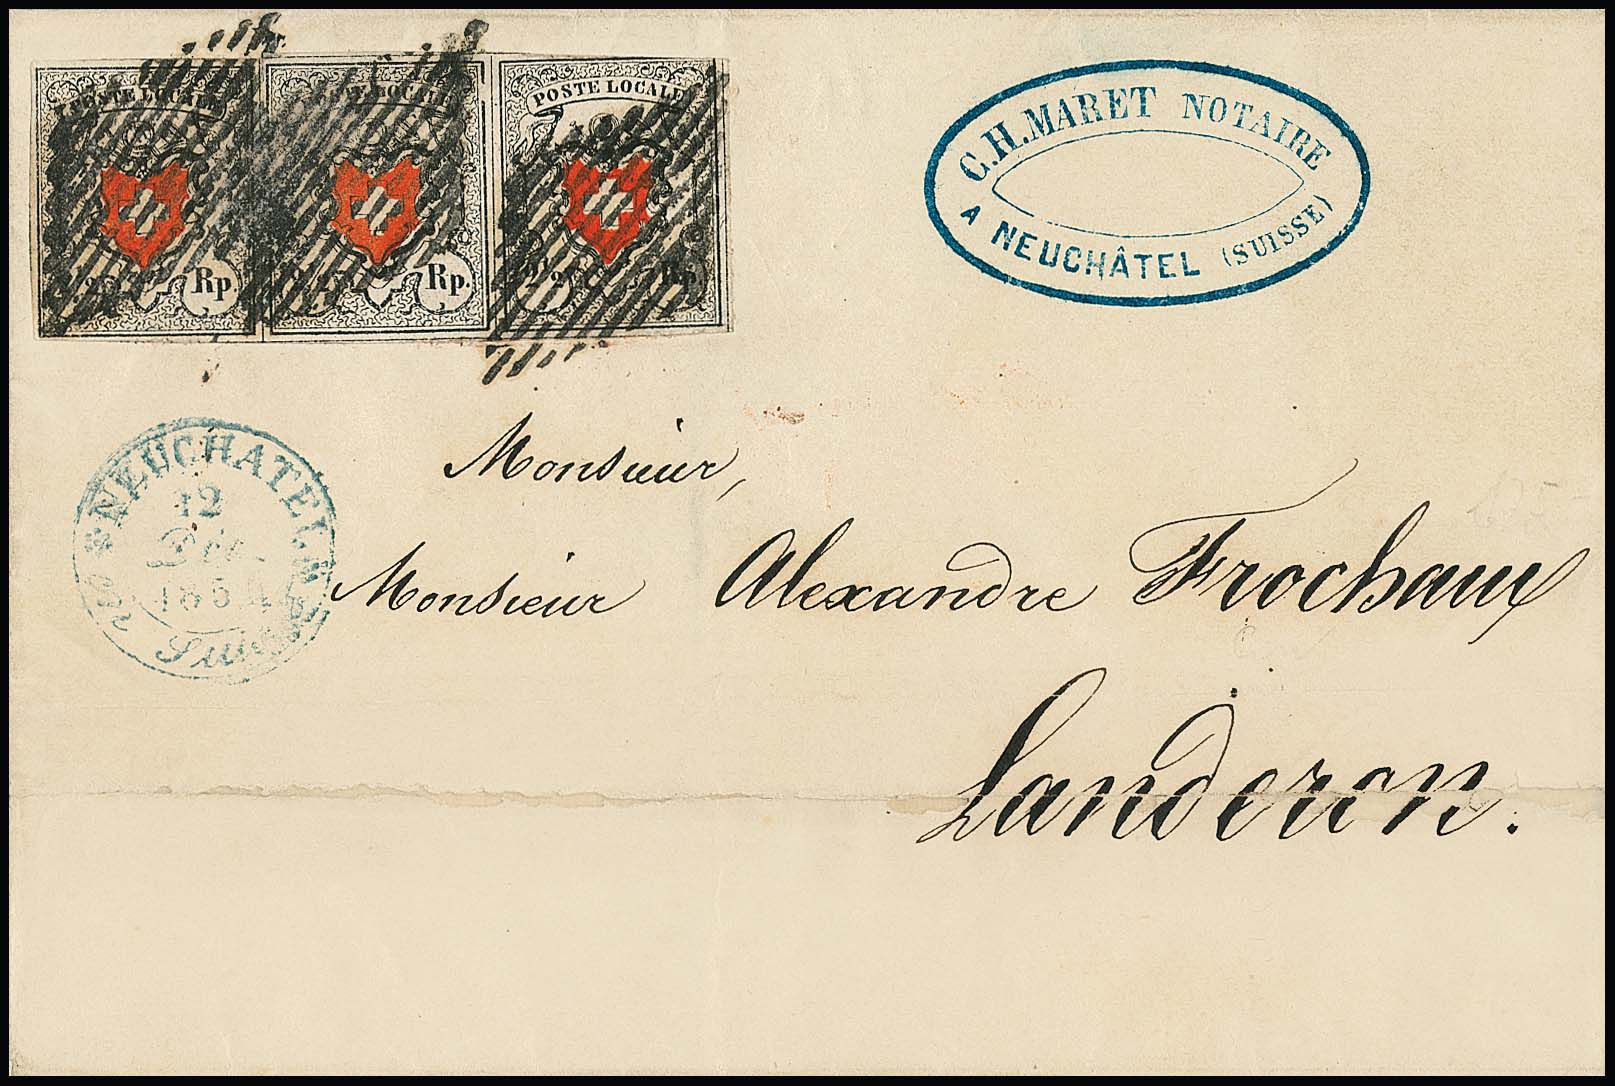 POSTE LOCALE
Rp.
POSTE LOCALE
Rp.
POSTE LOCALE
2½ Rp.
C.H. MARET NOTAIRE
A NEUCHÂTEL (SUISSE)
NEUCHATEL
12
Déc.
1851
Suisse
Monsieur,
Monsieur Alexandre Frochaux
Landeron.